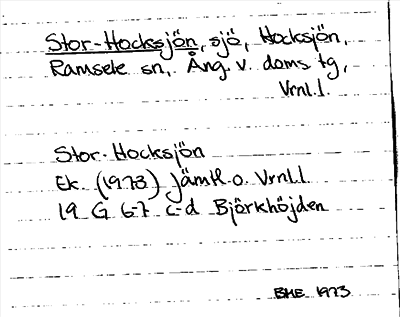 Stor-Hocksjön, sjö, Hocksjön,
Ramsele sn, Ång. v. doms tg,
Vrnl.l.
Stor-Hocksjön
Ek. (1973) Jämtl o. Vrnl.l
19 G 6-7 c-d Björkhöjden
BHE 1973